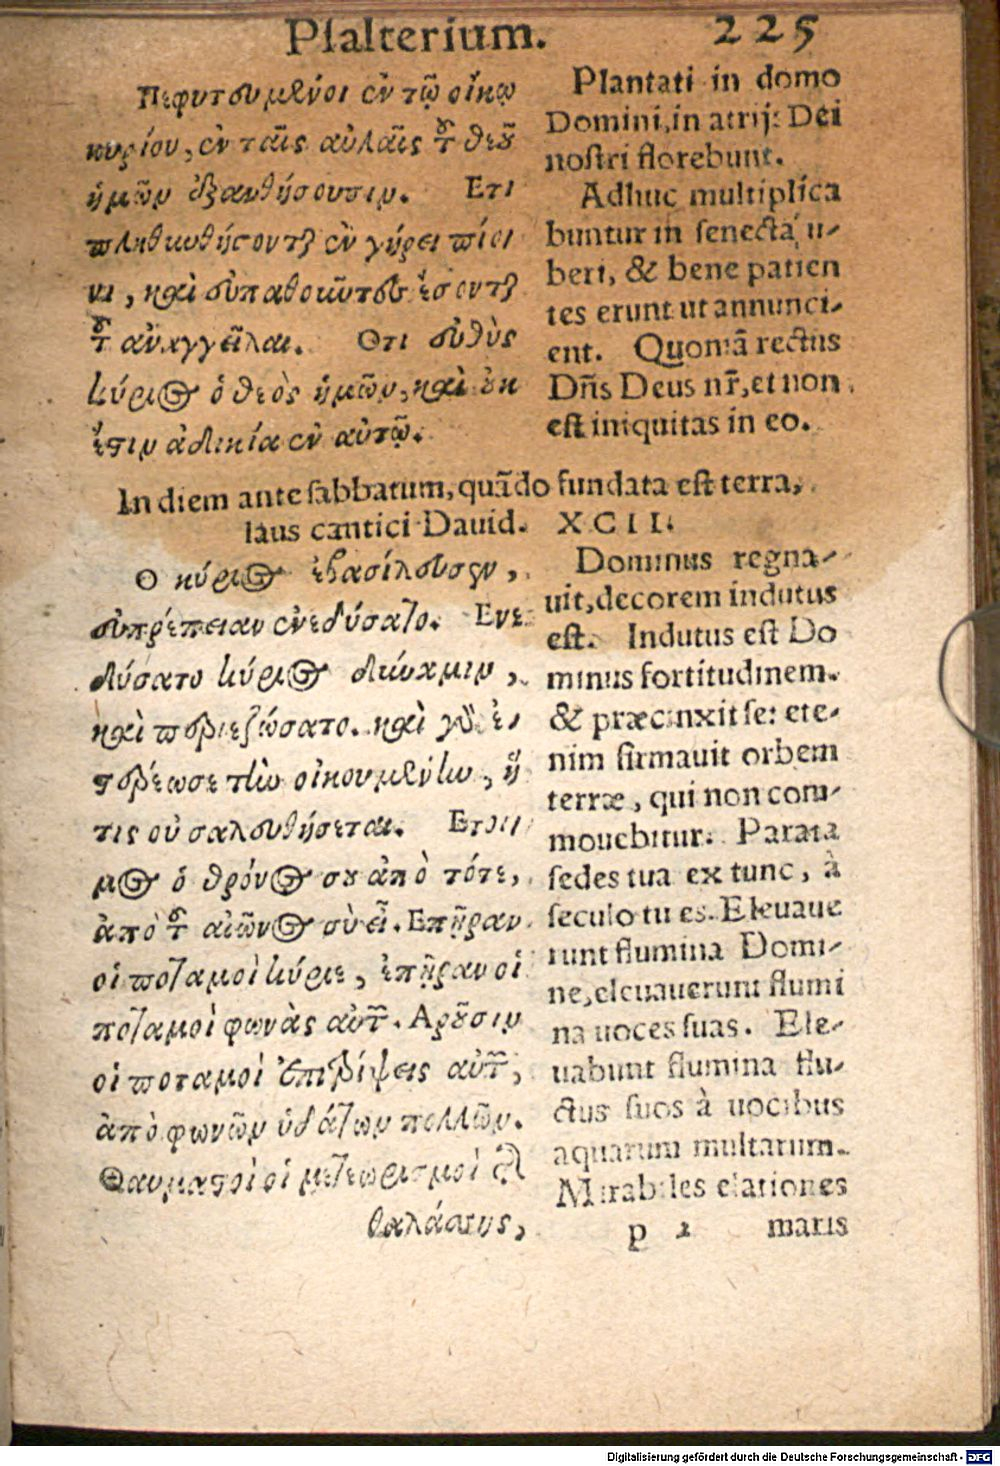 Psalterium. 225
Πεφυτευμένοι ἐν τῷ οἴκῳ
κυρίου, ἐν ταῖς αὐλαῖς τοῦ θεοῦ
ἡμῶν ἐξανθήσουσιν. Ετι
πληθυνθήσονται ἐν γήρει πίονι
νι, καὶ εὐπαθοῦντες ἔσονται
τοῦ ἀναγγεῖλαι. Οτι εὐθὺς
κύριος ὁ θεὸς ἡμῶν, καὶ ὀυκ
ἔστιν ἀδικία ἐν αὐτῷ.
Plantati in domo
Domini, in atrijs Dei
nostri florebunt.
Adhuc multiplica
buntur in senecta u-
beri, & bene patien
tes erunt ut annunci-
ent. Quoniã rectus
Dñs Deus nr̃, et non
est iniquitas in eo.
In diem ante sabbatum, quãdo fundata est terra,
laus cantici Dauid. XCII.
Ο κύριος ἐβασίλευσεν,
εὐπρέπειαν ἐνεδύσατο. Ενε-
δύσατο κύριος δύναμιν,
καὶ περιεζώσατο. καὶ γὰρ ἐ-
στερέωσε τὴν οἰκουμένην, ἥ
τις οὐ σαλευθήσεται. Ετοι
μος ὁ θρόνος σου ἀπὸ τότε,
ἀπὸ τοῦ αἰῶνος σὺ εἶ. Επῆραν
οἱ ποταμοὶ κύριε, ἐπῆραν οἱ
ποταμοὶ φωνὰς αὐτῶν. Αροῦσιν
οἱ ποταμοὶ ἐπιτρίψεις αὐτῶν,
ἀπὸ φωνῶν ὑδάτων πολλῶν.
Θαυμαστοὶ οἱ μετεωρισμοὶ τῆς
θαλάσσης,
Dominus regna-
uit, decorem indutus
est. Indutus est Do
minus fortitudinem.
& præcinxit se: ete-
nim firmauit orbem
terræ, qui non com-
mouebitur. Parata
sedes tua ex tunc, à
seculo tu es. Eleuaue
runt flumina Domi-
ne, eleuauerunt flumi
na uoces suas. Ele-
uabunt flumina flu-
ctus suos à uocibus
aquarum multarum.
Mirabiles elationes
p 1 maris
Digitalisierung gefördert durch die Deutsche Forschungsgemeinschaft - DFG